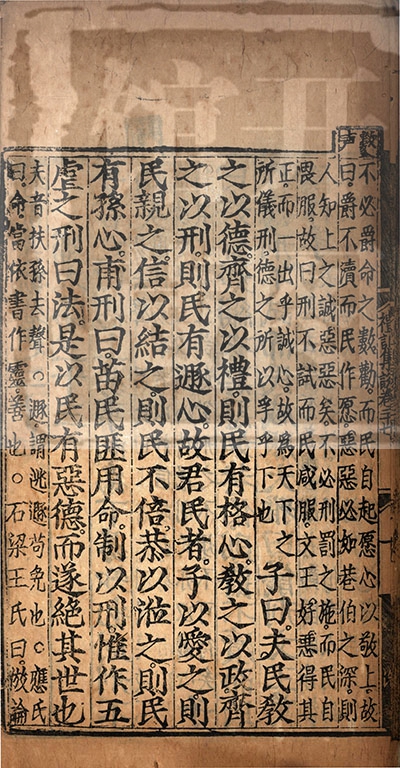 數
声
不必爵命之數勸而民自起愿心以敬上故
曰爵不瀆而民作愿惡惡必如巷伯之深則
人知上之誠惡惡矣不必刑罰之施而民自
畏服故曰刑不試而民咸服文王好惡得其
正而一出乎誠心故為天下之
所儀刑德之所以孚乎下也
子曰夫民敎
之以德齊之以禮則民有格心敎之以政齊
之以刑則民有遯心故君民者子以愛之則
民親之信以結之則民不倍恭以涖之則民
有孫心甫刑曰苗民匪用命制以刑惟作五
虐之刑曰法是以民有惡德而遂絕其世也
夫音扶孫去聲○遯謂逃遯苟免也○應氏
曰命當依書作靈善也○石梁王氏曰倣論